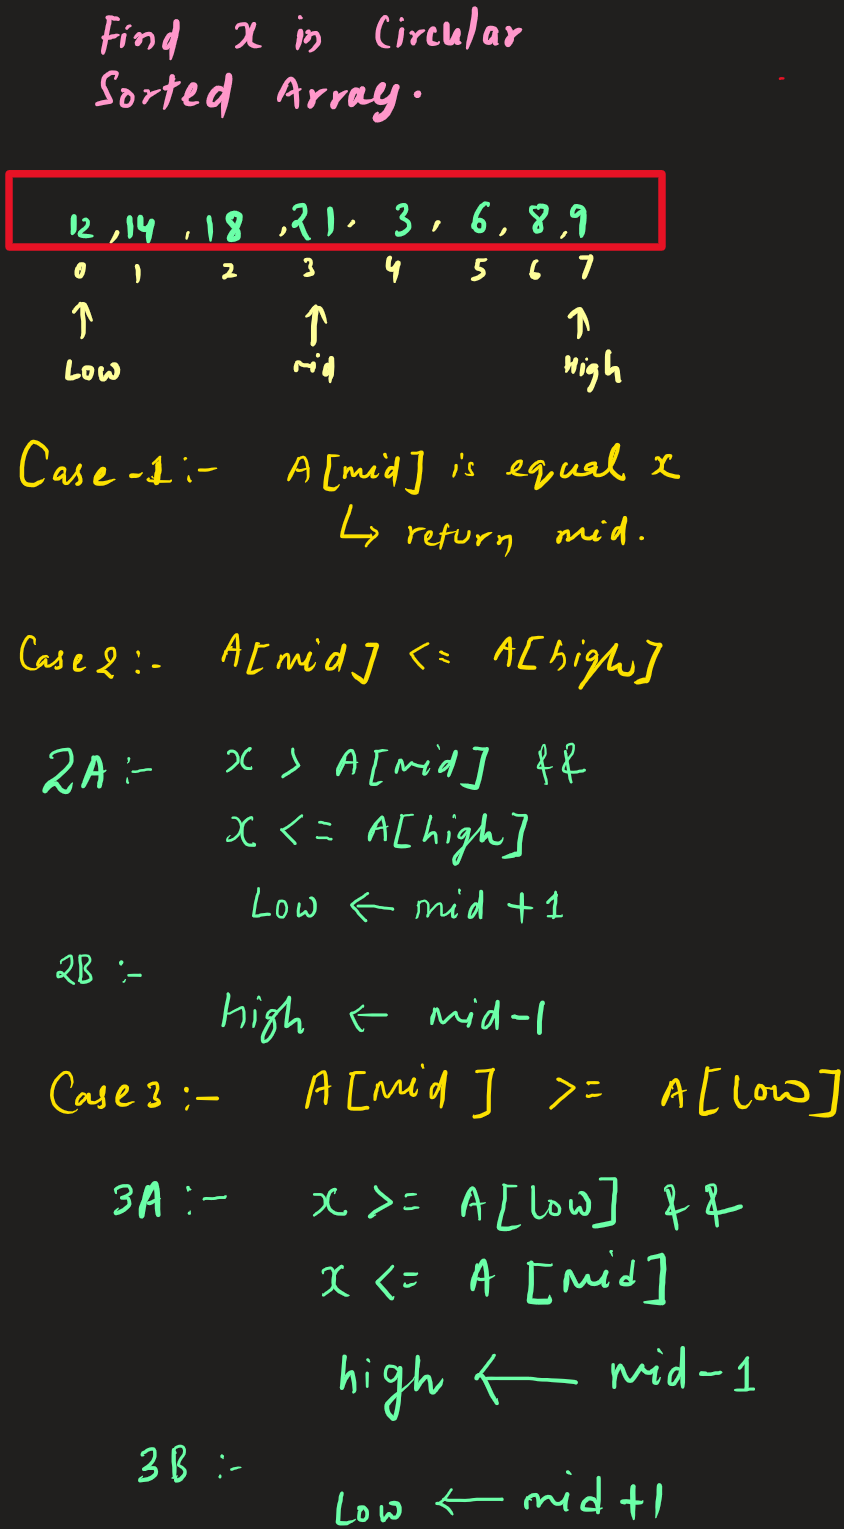 Find x in Circular
Sorted Array.
12, 14, 18, 21, 3, 6, 8, 9
0 1 2 3 4 5 6 7
Low mid High
Case-1:- A[mid] is equal x
↳ return mid.
Case 2:- A[mid] <= A[high]
2A:- x > A[mid] &&
x <= A[high]
Low ← mid + 1
2B:-
high ← mid-1
Case 3:- A[mid] >= A[low]
3A:- x >= A[low] &&
x <= A[mid]
high ← mid-1
3B:-
Low ← mid+1